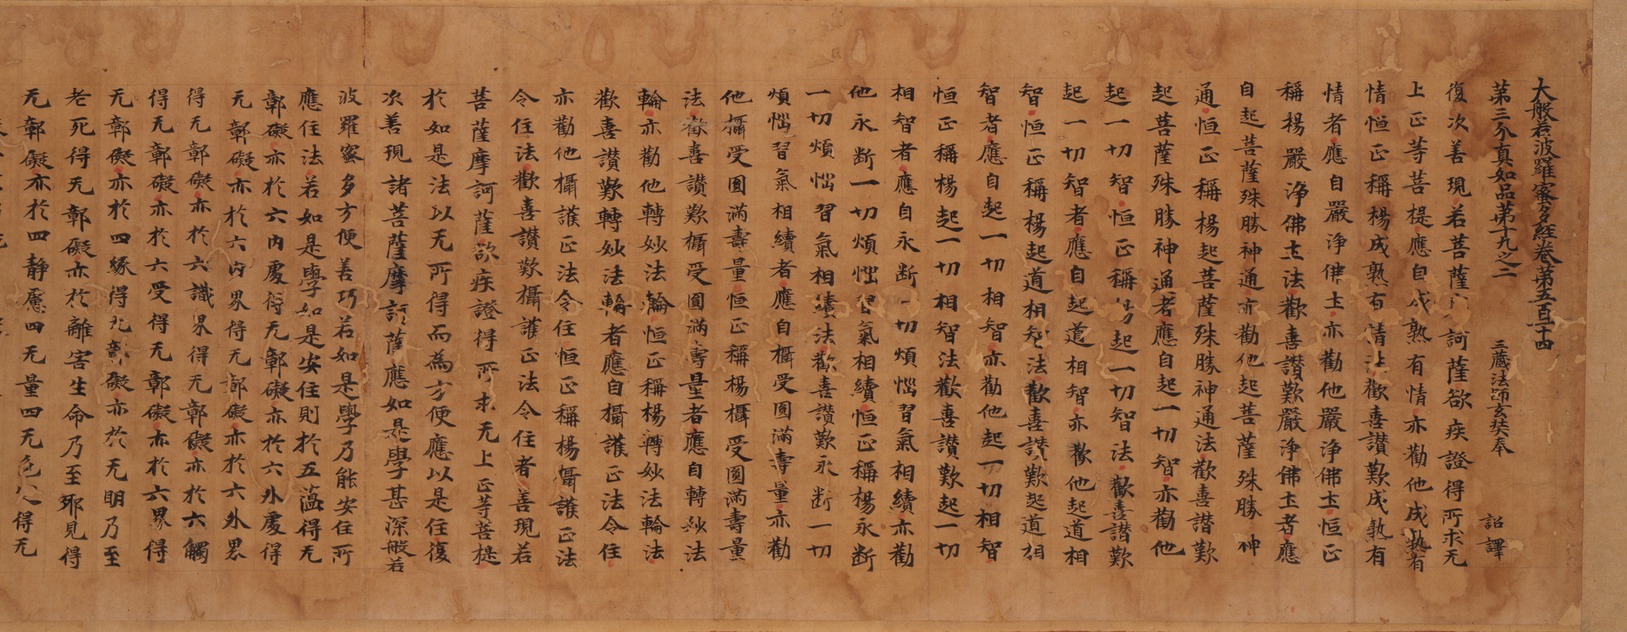 大般若波羅蜜多經卷第五百一十四
第三分真如品第十九之二　三藏法師玄奘奉　詔譯
復次善現若菩薩訶薩欲疾證得所求无
上正等菩提應自成熟有情亦勸他成熟有
情恒正稱楊成熟有情法歡喜讃歎成熟有
情者應自嚴淨佛土亦勸他嚴淨佛土恒正
稱楊嚴淨佛土法歡喜讃歎嚴淨佛土者應
自起菩薩殊勝神通亦勸他起菩薩殊勝神
通恒正稱楊起菩薩殊勝神通法歡喜讃歎
起菩薩殊勝神通者應自起一切智亦勸他
起一切智恒正稱楊起一切智法歡喜讃歎
起一切智者應自起道相智亦勸他起道相
智恒正稱楊起道相智法歡喜讃歎起道相
智者應自起一切相智亦勸他起一切相智
恒正稱楊起一切相智法歡喜讃歎起一切
相智者應自永断一切煩惱習氣相續亦勸
他永断一切煩惱習氣相續恒正稱楊永断
一切煩惱習氣相續法歡喜讃歎永断一切
煩惱習氣相續者應自攝受圓滿壽量亦勸
他攝受圓滿壽量恒正稱楊攝受圓滿壽量
法歡喜讃歎攝受圓滿壽量者應自轉妙法
輪亦勸他轉妙法輪恒正稱楊轉妙法輪法
歡喜讃歎轉妙法輪者應自攝護正法令住
亦勸他攝護正法令住恒正稱楊攝護正法
令住法歡喜讃歎攝護正法令住者善現若
菩薩摩訶薩欲疾證得所求无上正等菩提
於如是法以无所得而為方便應以是住復
次善現諸菩薩摩訶薩應如是學甚深般若
波羅蜜多方便善巧若如是學乃能安住所
應住法若如是學如是安住則於五薀得无
鄣礙亦於六内處得无鄣礙亦於六外處得
无鄣礙亦於六内界得无鄣礙亦於六外界
得无鄣礙亦於六識界得无鄣礙亦於六觸
得无鄣礙亦於六受得无鄣礙亦於六界得
无鄣礙亦於四緣得无鄣礙亦於无明乃至
老死得无鄣礙亦於離害生命乃至邪見得
无鄣礙亦於四靜慮四无量四无色定得无